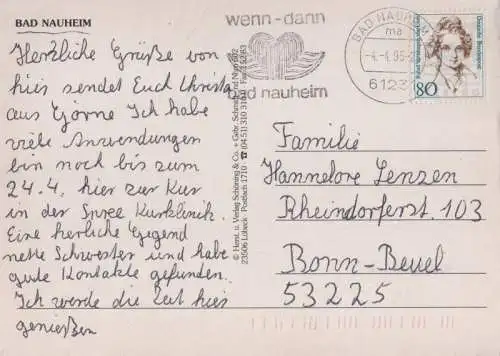 BAD NAUHEIM
Herzliche Grüße von
hier sendet Euch Christa
aus Gjorne Ich habe
viele Anwendungen
bin noch bis zum
24.4. hier zur Kur
in der Spree Kurklinik.
Eine herliche Gegend
nette Schwester und habe
gute Kontakte gefunden.
Ich werde die Zeit hier
genießen
wenn-dann
bad nauheim
BAD NAUHEIM
ma
-4.-4.95
6123
Deutsche Bundespost
80
© Herst. u. Verlag Schöning & Co. + Gebr. Schmidt
23506 Lübeck · Postfach 1710 · ☎ (04 51) 310 31
Familie
Hannelore Lenzen
Rheindorferst. 103
Bonn-Beuel
53225